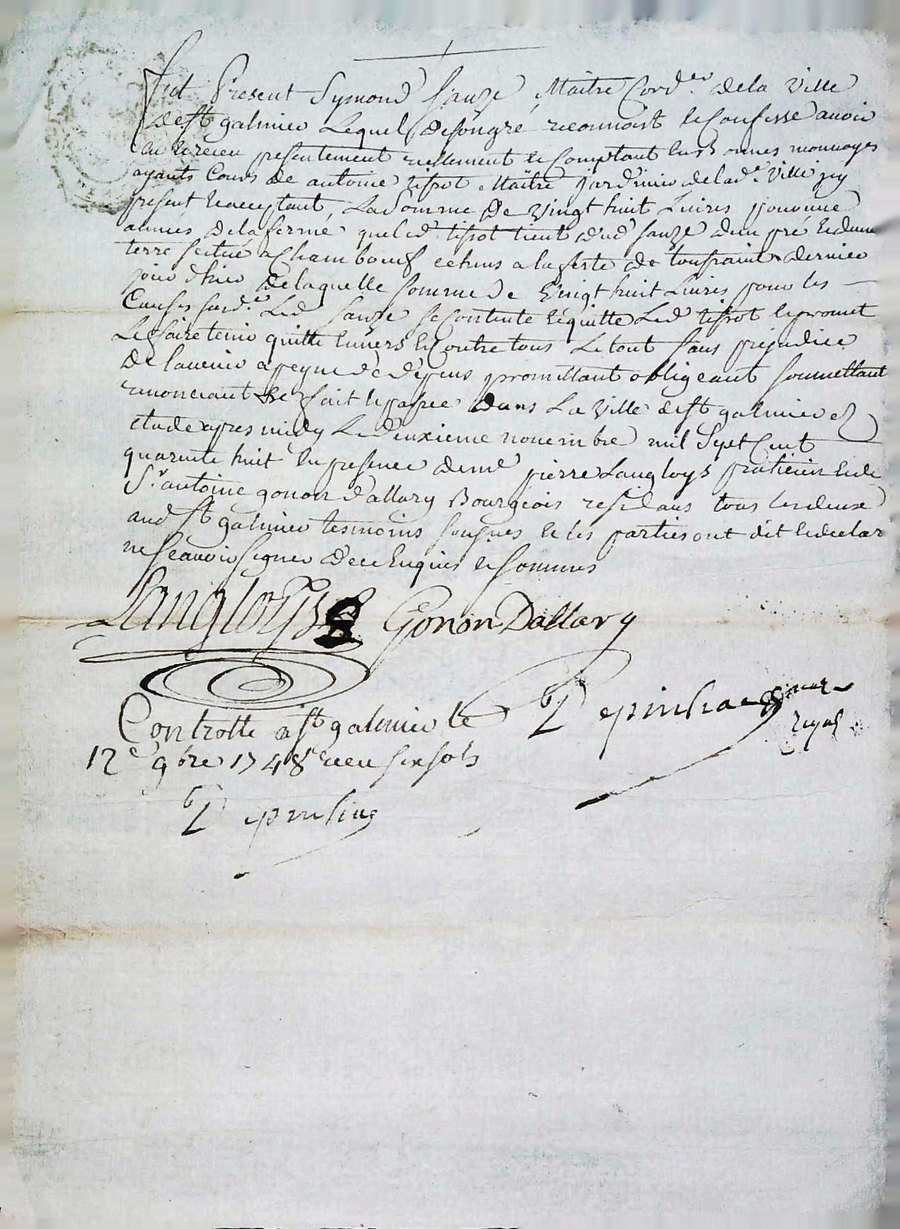 fut Present Symond Sauze Maitre Cord.er de la Ville
de st galmier Lequel de son gré reconnoist et Confesse avoir
eu et receu presentement reellement et Comptant en bonnes monnoyes
ayants Cours de antoine tissot Maitre jardinier de lad.e Ville jcy
present et acceptant, La Somme de Vingt huit Livres pour une
année de la ferme que led. tissot tient dud. Sauze d'un pré et d'une
terre scitué a Chambœuf echeus a la feste de toussaints dernier
jour d'hier de laquelle somme de Vingt huit Livres pour les
Causes susd.es Led. Sauze se Contente et quitte Led. tissot et promet
Le faire tenir quitte Envers et Contre tous Le tout sans prejudice
de l'avenir a peyne de depens promettant obligeant soumettant
renonceant &c fait et passé dans La Ville de st galmier
etude apres midy Le deuxieme novembre mil Sept Cent
quarante huit En presence de me pierre Langloys praticien et de
Sr. antoine gonon d'allary Bourgeois residans tous les deux
aud. st galmier tesmoins sousignes et les parties ont dit et declaré
ne sçavoir signer de ce Enquis et sommés
Langloys Gonon Dallary
Controllé a st galmier le
12e 9bre 1748 receu six sols
royal